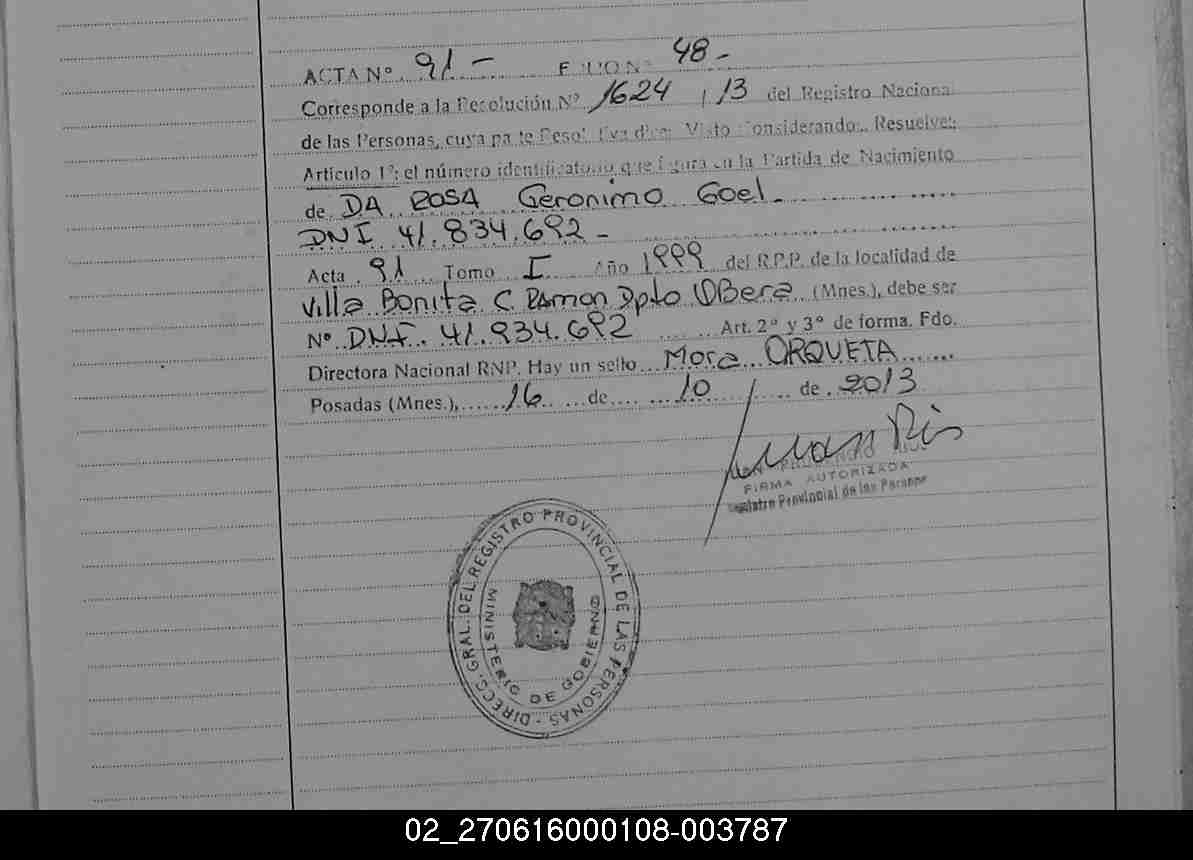 ACTA Nº 91 - FOLIO Nº 48 -
Corresponde a la Resolución Nº 1624 / 13 del Registro Nacional
de las Personas, cuya parte Resol. Eva dice: Visto Considerando:, Resuelve:
Artículo 1º: el número identificatorio que figura en la Partida de Nacimiento
de DA ROSA Geronimo Goel.
DNI 41.834.692 -
Acta 91 Tomo I Año 1999 del R.P.P. de la localidad de
Villa Bonita C. RAmon Dpto OBera (Mnes.), debe ser
Nº DNI. 41.934.692 Art. 2º y 3º de forma. Fdo.
Directora Nacional RNP. Hay un sello Mora ORQUETA
Posadas (Mnes.), 16 de 10 de 2013
FIRMA AUTORIZADA
Registro Provincial de las Personas
DIRECC. GRAL. DEL REGISTRO PROVINCIAL DE LAS PERSONAS -
MINISTERIO DE GOBIERNO
02_270616000108-003787